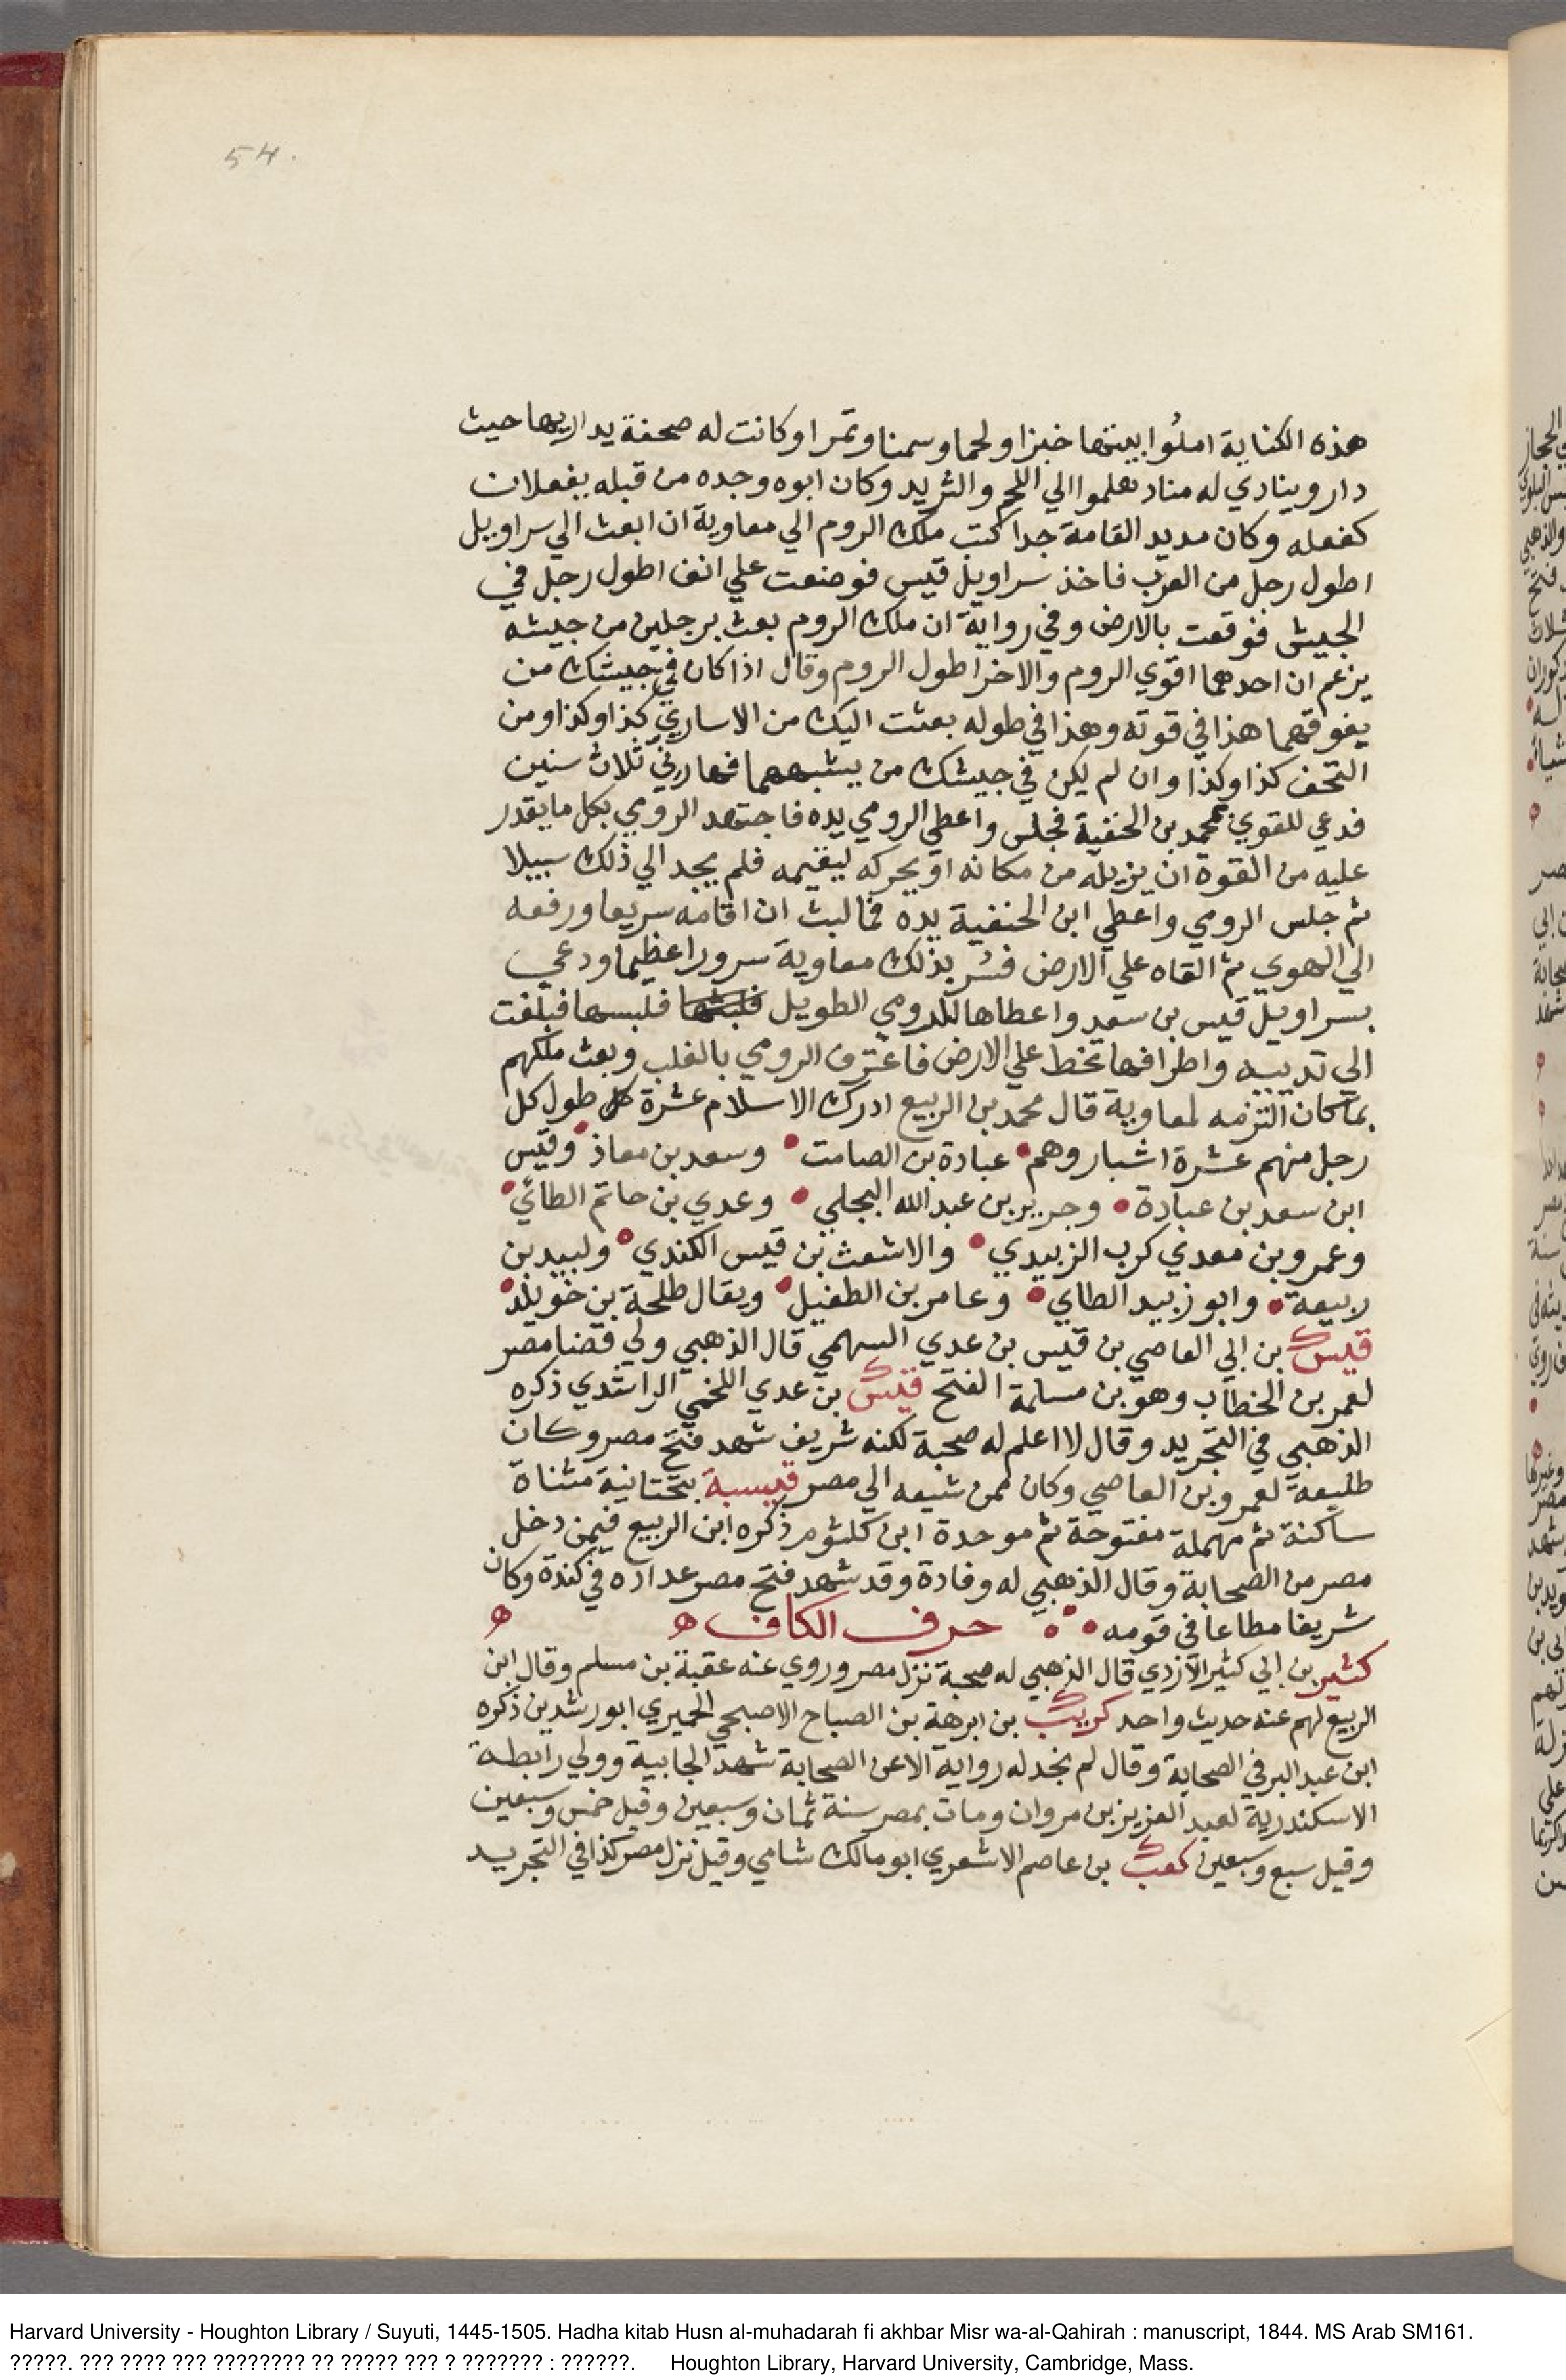 54.
هذه الكناية املئوا بيتها خبزا ولحما وسمنا وتمرا وكانت له صحفة يداريها حيث
دار وينادي له مناد هلموا الي اللحم والثريد وكان ابوه وجده من قبله يفعلان
كفعله وكان مديد القامة جدا كتب ملك الروم الي معاوية ان ابعث الي سراويل
اطول رجل من العرب فاخذ سراويل قيس فوضعت علي انف اطول رجل في
الجيش فوقعت بالارض وفي رواية ان ملك الروم بعث برجلين من جيشه
يزعم ان احدهما اقوي الروم والاخر اطول الروم وقال اذا كان في جيشك من
يفوقهما هذا في قوته وهذا في طوله بعثت اليك من الاساري كذا وكذا ومن
التحف كذا وكذا وان لم يكن في جيشك من يشبههما فهادني ثلاث سنين
فدعي للقوي محمد بن الحنفية فجلس واعطي الرومي يده فاجتهد الرومي بكل ما يقدر
عليه من القوة ان يزيله من مكانه او يحركه ليقيمه فلم يجد الي ذلك سبيلا
ثم جلس الرومي واعطي ابن الحنفية يده فما لبث ان اقامه سريعا ورفعه
الي الهوي ثم القاه علي الارض فسُر بذلك معاوية سرورا عظيما ودعي
بسراويل قيس بن سعد واعطاها للرومي الطويل فلبسها فبلغت
الي ثدييه واطرافها تخط علي الارض فاعترف الرومي بالغلب وبعث ملكهم
بما كان التزمه لمعاوية قال محمد بن الربيع ادرك الاسلام عشرة طول كل
رجل منهم عشرة اشبار وهم عبادة بن الصامت وسعد بن معاذ وقيس
ابن سعد بن عبادة وجرير بن عبد الله البجلي وعدي بن حاتم الطائي
وعمرو بن معدي كرب الزبيدي والاشعث بن قيس الكندي ولبيد بن
ربيعة وابو زبيد الطاي وعامر بن الطفيل ويقال طلحة بن خويلد
قيس بن ابي العاصي بن قيس بن عدي السهمي قال الذهبي ولي قضا مصر
لعمر بن الخطاب وهو بن مسلمة الفتح قيس بن عدي اللخمي الراشدي ذكره
الذهبي في التجريد وقال لا اعلم له صحبة لكنه شريف شهد فتح مصر وكان
طليعة لعمرو بن العاصي وكان ممن شيعه الي مصر قيسبة بتحتانية مثناة
ساكنة ثم مهملة مفتوحة ثم موحدة ابن كلثوم ذكره ابن الربيع فيمن دخل
مصر من الصحابة وقال الذهبي له وفادة وقد شهد فتح مصر عداده في كندة وكان
شريفا مطاعا في قومه حرف الكاف
كثير بن ابي كثير الازدي قال الذهبي له صحبة نزل مصر وروي عنه عقبة بن مسلم وقال ابن
الربيع لهم عنه حديث واحد كريب بن ابرهة بن الصباح الاصبحي الحميري ابو رشدين ذكره
ابن عبد البر في الصحابة وقال لم نجد له رواية الا عن الصحابة شهد الجابية وولي رابطة
الاسكندرية لعبد العزيز بن مروان ومات بمصر سنة ثمان وسبعين وقيل خمس وسبعين
وقيل سبع وسبعين كعب بن عاصم الاشعري ابو مالك شامي وقيل نزل مصر كذا في التجريد
Harvard University - Houghton Library / Suyuti, 1445-1505. Hadha kitab Husn al-muhadarah fi akhbar Misr wa-al-Qahirah : manuscript, 1844. MS Arab SM161.
?????. ??? ???? ??? ???????? ?? ????? ??? ? ??????? : ??????. Houghton Library, Harvard University, Cambridge, Mass.